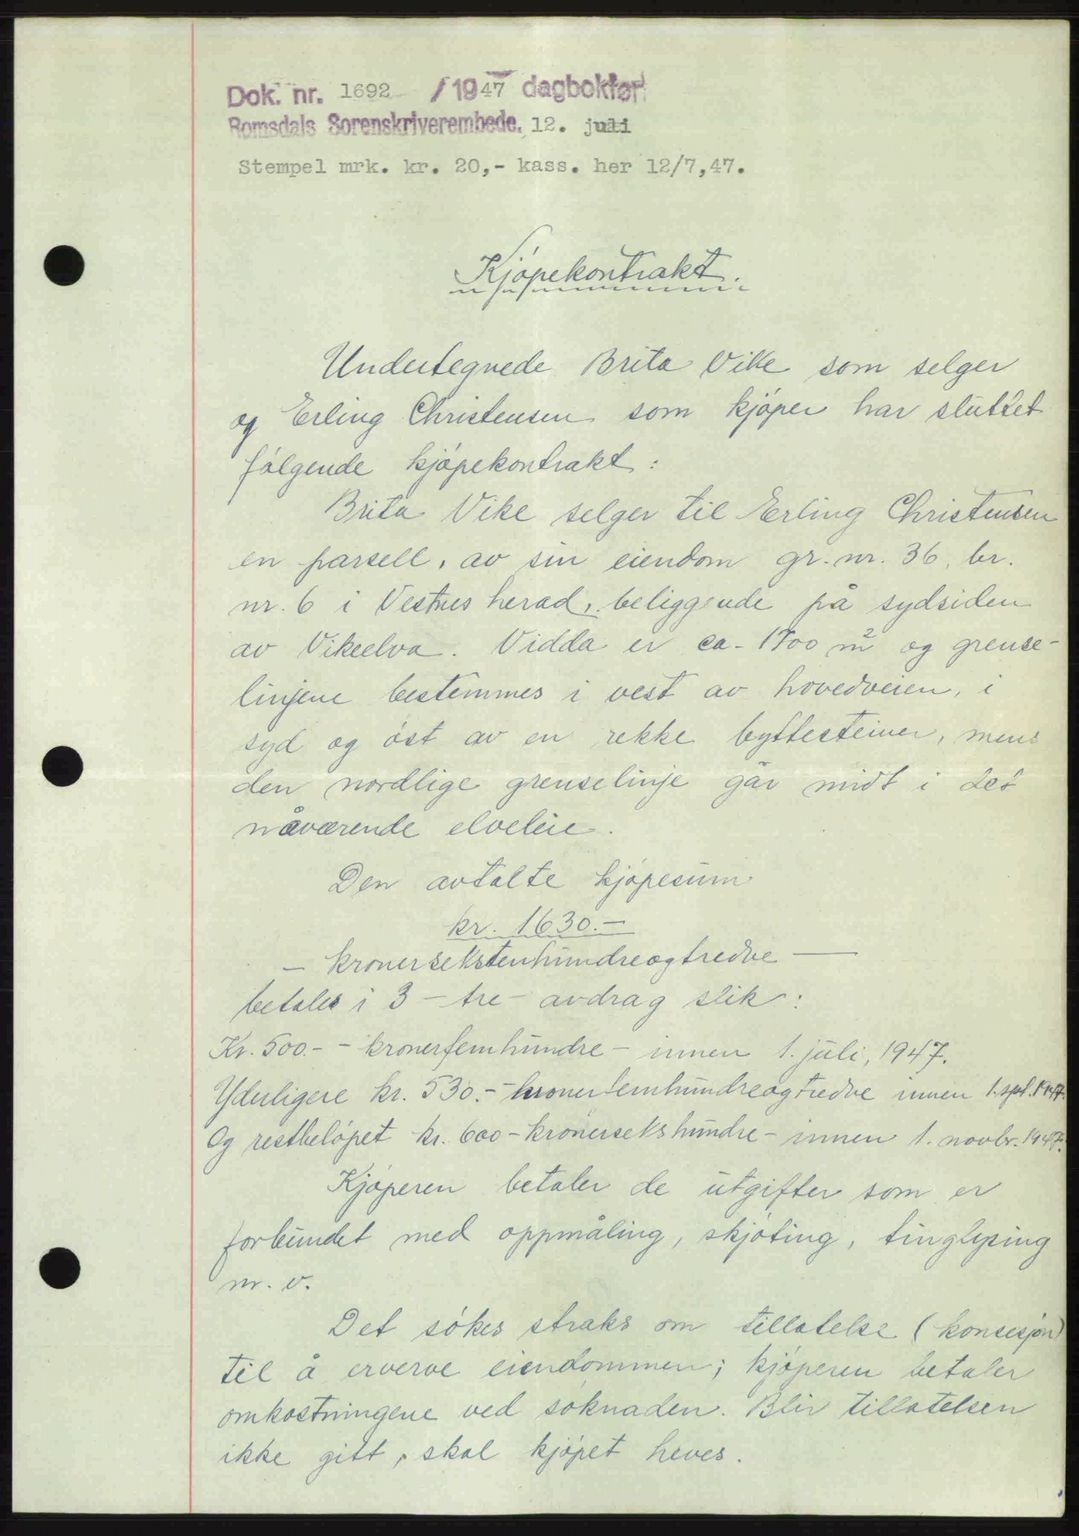 Dok. nr. 1692 / 1947 dagbokført
Romsdals Sorenskriverembede, 12. juli
Stempel mrk. kr. 20,- kass. her 12/7,47.
Kjøpekontrakt.
Undertegnede Brita Vike som selger
og Erling Christensen som kjøper har sluttet
følgende kjøpekontrakt:
Brita Vike selger til Erling Christensen
en parsell, av sin eiendom gr. nr. 36, br.
nr. 6 i Vestnes herad, beliggende på sydsiden
av Vikeelva. Vidda er ca. 1700 m² og grense-
linjene bestemmes i vest av hovedveien, i
syd og øst av en rekke byttesteiner, mens
den nordlige grenselinje går midt i det
nåværende elveleie.
Den avtalte kjøpesum
kr. 1630.-
- kronersekstenhundreogtredve -
betales i 3 - tre - avdrag slik:
Kr. 500.- - kronerfemhundre - innen 1. juli, 1947.
Yderligere kr. 530.- - kronerfemhundreogtredve innen 1. spt. 1947.
Og restbeløpet kr. 600 - kronersekshundre - innen 1. novbr. 1947.
Kjøperen betaler de utgifter som er
forbundet med oppmåling, skjøting, tinglysing
m. v.
Det søkes straks om tillatelse (konsesjon)
til å erverve eiendommen; kjøperen betaler
omkostningene ved søknaden. Blir tillatelsen
ikke gitt, skal kjøpet heves.